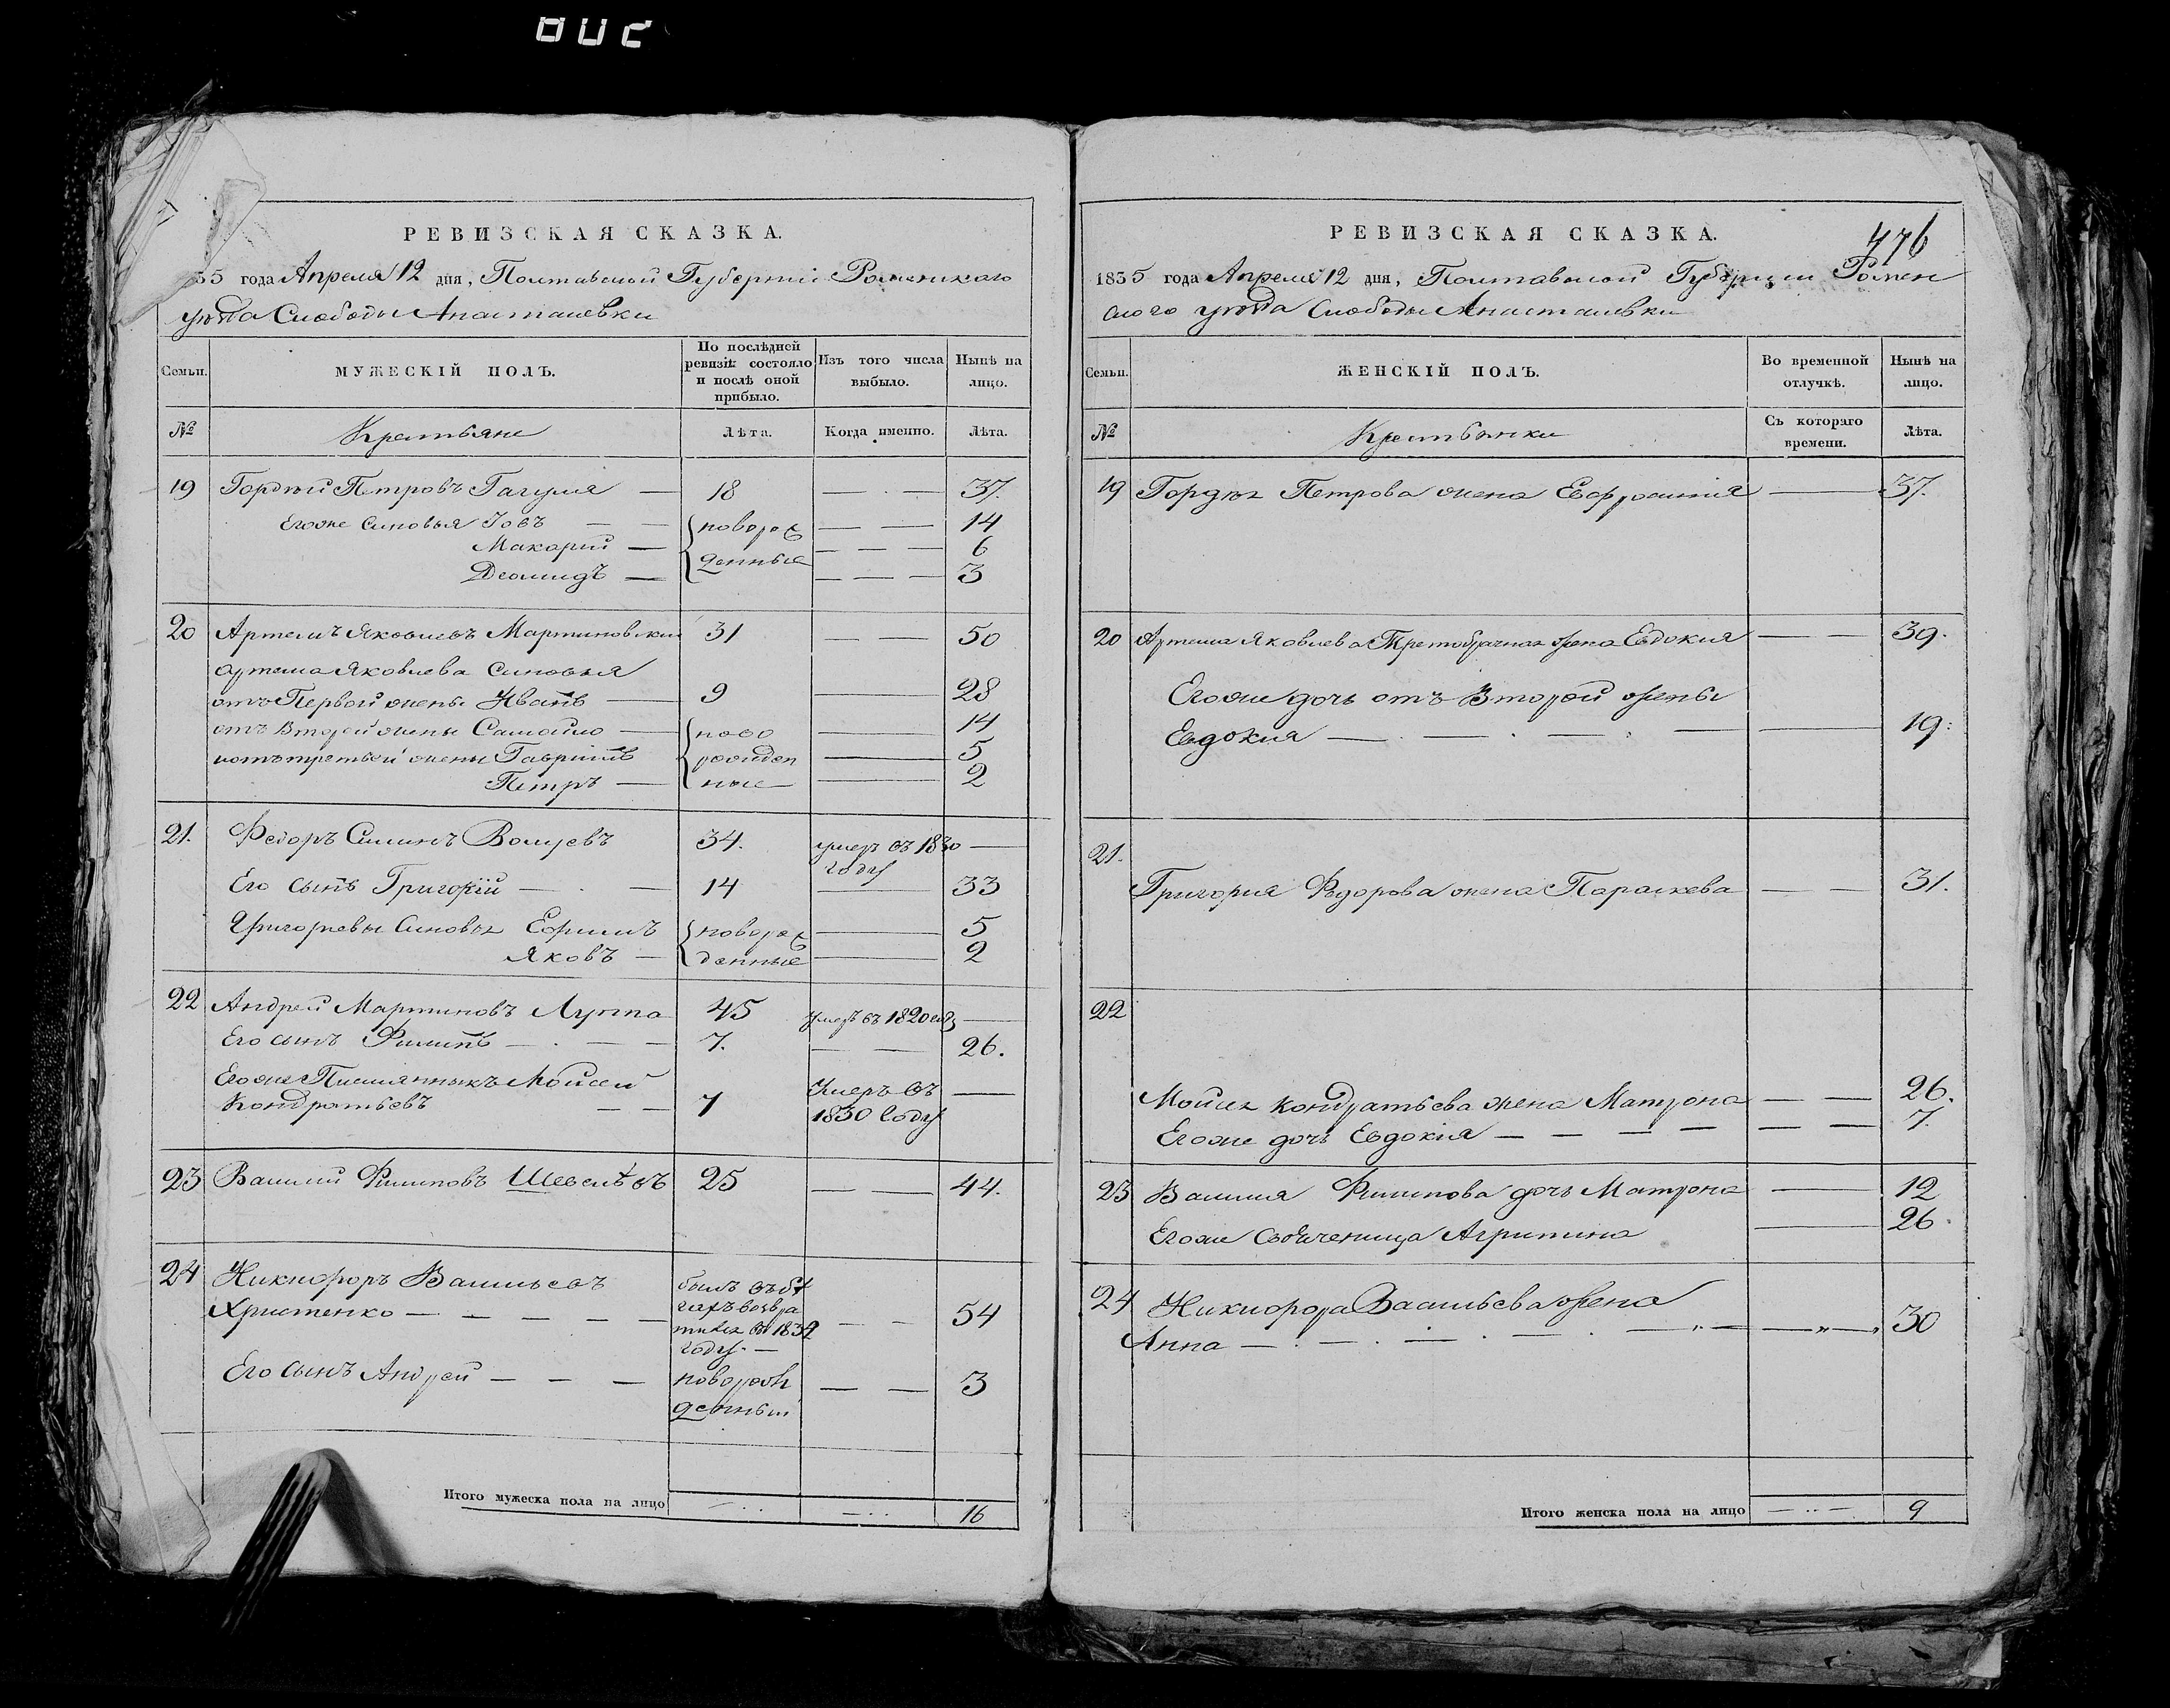 РЕВИЗСКАЯ СКАЗКА.
35 года Апреля 12 дня, Полтавской Губернии Роменскаго
уезда Слободы Анасташевки
Семьи.
МУЖЕСКІЙ ПОЛЪ.
По послѣдней ревизіи состояло и послѣ оной прибыло.
Изъ того числа выбыло.
Нынѣ на лицо.
№
Крестьяне
Лѣта.
Когда именно.
Лѣта.
19 Гордѣй Петровъ — 18 — 37.
Егоже синовья Іовъ — новорож 14
Макарій — 6
Деомидъ — денные 3
20 Артемъ Яковлевъ Мартиновски 31 — 50
Артема Яковлева синовья
отъ Первой жены Иванъ — 9 — 28
отъ Второй жены Самойло — ново 14
иотъ третьей жены Гаврiилъ рожден 5
Петръ — ные 2
21. Федоръ Силинъ 34. умеръ въ 1830 —
году
Его сынъ Григорій — 14 — 33
Григорьевы синовья Ефримъ новорож 5
Яковъ — денные 2
22 Андрей Мартиновъ Луппа 45 умеръ въ 1820 году —
Его сынъ Филипъ — 7. — 26.
Егоже Племянникъ Мойсей
Кондратьевъ — 7 Умеръ въ 1830 году —
23 Василий Филиповъ Шевелѣвъ 25 — 44.
24 Никифоръ Васильевъ
Христенко — былъ въ бѣгахъ возвратився въ 1834 году. — 54
Его сынъ Андрей — новорожденный — 3
Итого мужеска пола на лицо 16
РЕВИЗСКАЯ СКАЗКА.
476
1835 года Апреля 12 дня, Полтавской Губернии Ромен
ского уезда Слободы Анасташевки
Семьи.
ЖЕНСКІЙ ПОЛЪ.
Во временной отлучкѣ.
Нынѣ на лицо.
№
Крестьянки
Съ котораго времени.
Лѣта.
19 Гордѣя Петрова жена Ефросиния — 37.
20 Артема Яковлева Третобрачная жена Евдокия — 39.
Егоже дочь отъ Второй жены
Евдокия — 19.
21.
Григория Федорова жена Параскева — 31.
22
Мойсея Кондратьева жена Матрона — 26.
Егоже дочь Евдокія — 7.
23 Василия Филипова дочь Матрона — 12
Егоже Свояченица Агрипина — 26.
24 Никифора Васильева жена
Анна — 30
Итого женска пола на лицо 9